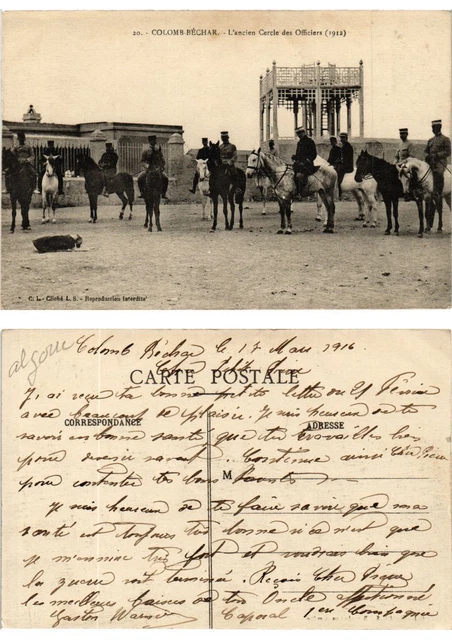 20. - COLOMB-BÉCHAR. - L'ancien Cercle des Officiers (1912)
C. L. - Cliché L. S. - Reproduction interdite
Colomb Béchar le 17 Mars 1916
CARTE POSTALE
J'ai reçu ta bonne petite lettre du 21 Février
avec beaucoup de plaisir. Je suis heureux de te
CORRESPONDANCE
ADRESSE
savoir en bonne santé que tu travailles bien
pour devenir savant. Continue ainsi Cher
M
pour contenter tes bons Parents
Je suis heureux de te faire savoir que ma
santé est toujours très bonne si ce n'est que
je m'ennuie très fort et voudrais bien que
la guerre soit terminée. Reçois Cher
les meilleurs baisers de ton Oncle affectionné
Gaston
Caporal 1ère Compagnie